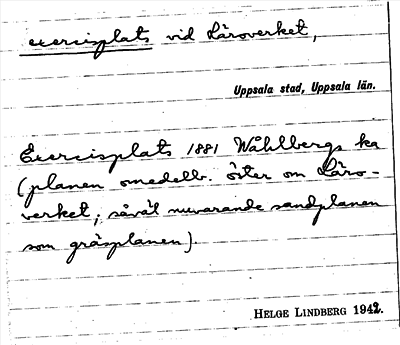 exercisplats vid Läroverket,
Uppsala stad, Uppsala län.
Exercisplats 1881 Wåhlbergs ka
(planen omedelb. öster om Läro-
verket; såväl nuvarande sandplanen
som gräsplanen).
HELGE LINDBERG 1942.